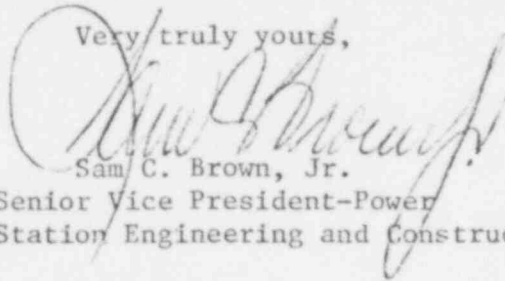 Very truly yours,
Sam C. Brown, Jr.
Sam C. Brown, Jr.
Senior Vice President-Power
Station Engineering and Construc